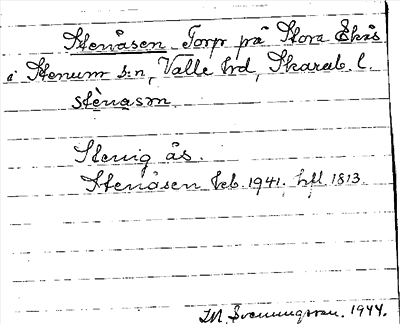 Stenåsen Torp på Stora Ekås
i Stenum s:n, Valle hd, Skarab. l.
stènasm
Stenig ås.
Stenåsen kb. 1941. hfl 1813.
M Svenningsson. 1944.